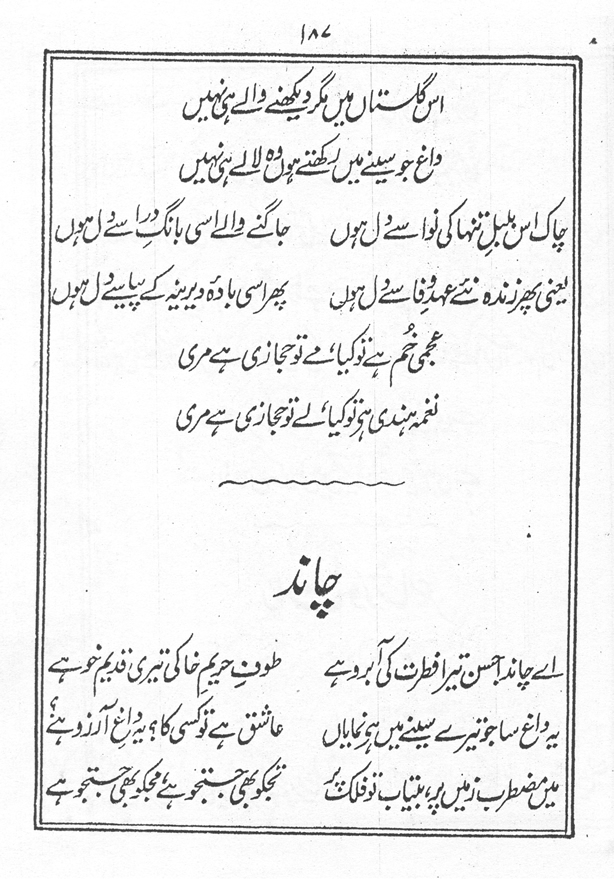 ۱۸۷
اس گلستاں میں مگر دیکھنے والے ہی نہیں
داغ جو سینے میں رکھتے ہوں وہ لالے ہی نہیں
چاک اس بلبلِ تنہا کی نوا سے دل ہوں جاگنے والے اسی بانگِ درا سے دل ہوں
یعنی پھر زندہ نئے عہدِ وفا سے دل ہوں پھر اسی بادۂ دیرینہ کے پیاسے دل ہوں
عجمی خُم ہے تو کیا، مے تو حجازی ہے مری
نغمہ ہندی ہے تو کیا، لے تو حجازی ہے مری
چاند
اے چاند! حسن تیرا فطرت کی آبرو ہے طوفِ حریمِ خاکی تیری قدیم خو ہے
یہ داغ سا جو تیرے سینے میں ہے نمایاں عاشق ہے تو کسی کا؟ یہ داغِ آرزو ہے؟
میں مضطرب زمیں پر، بیتاب تو فلک پر تجکو بھی جستجو ہے، مجکو بھی جستجو ہے